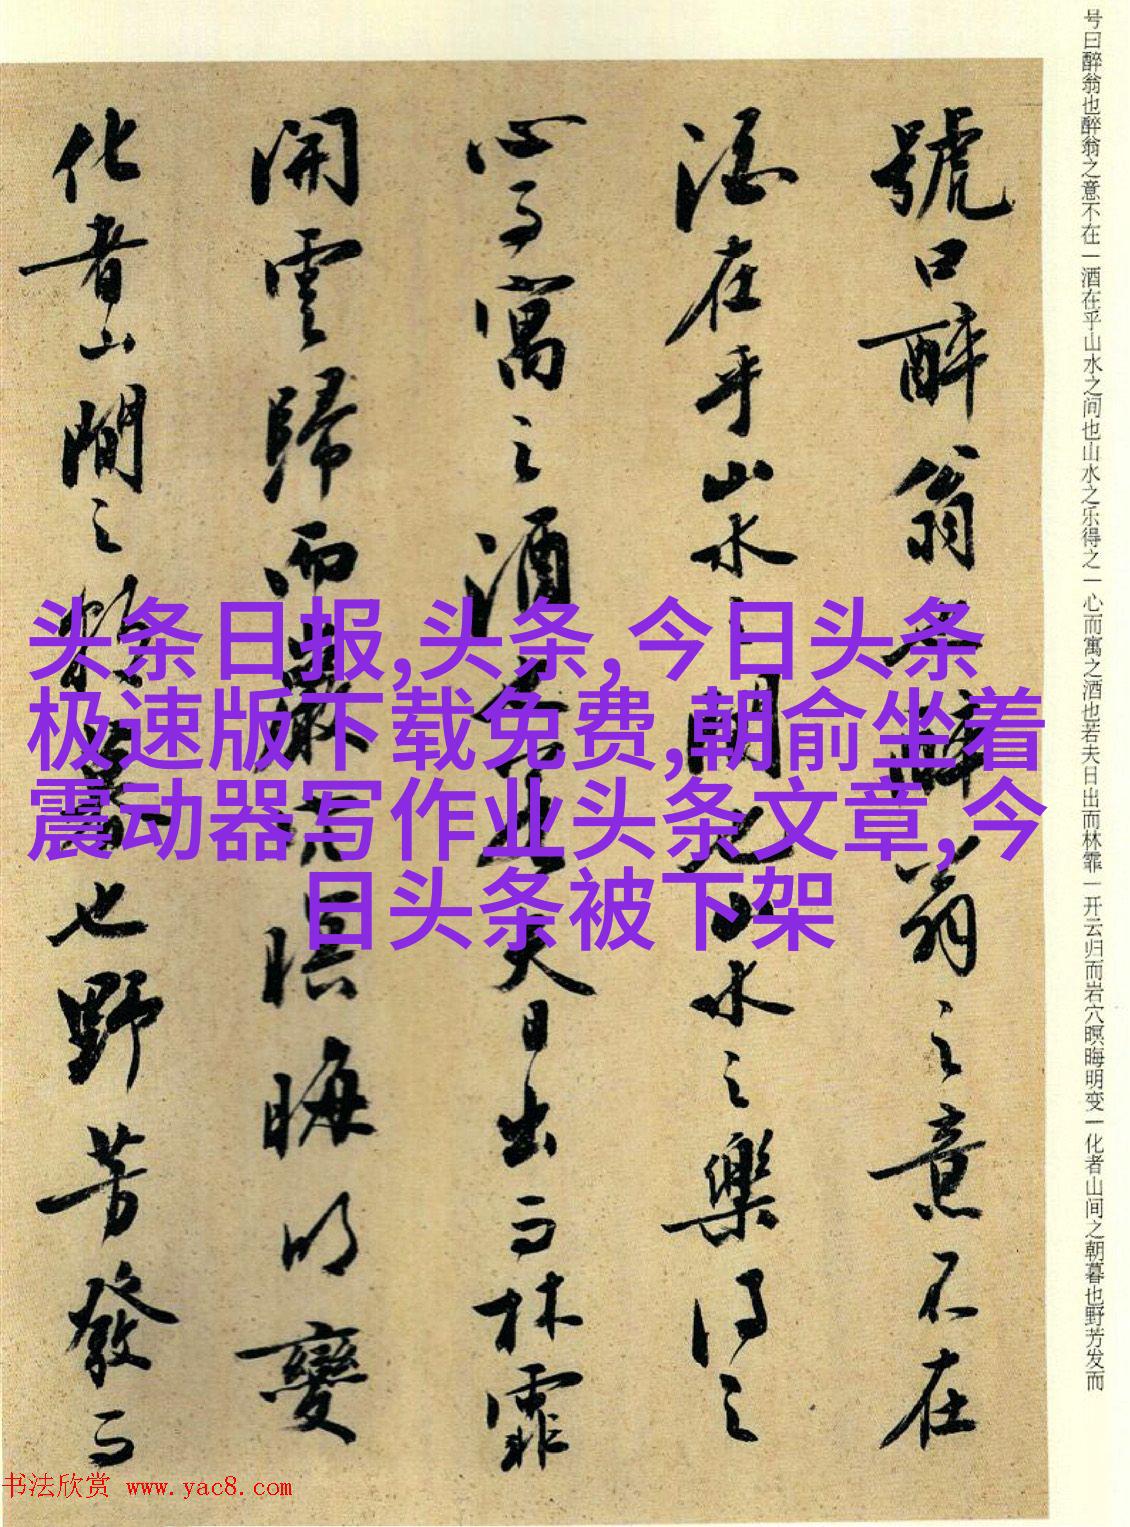 号曰醉翁也醉翁之意不在一酒在乎山水之间也山水之乐得之一心而寓之酒也若夫日出而林霏一开云归而岩穴暝晦明变一化者山间之朝暮也野芳发而
號曰醉翁也醉翁之意不在
酒在乎山水之間也山水之樂得之
心而寓之酒也若夫日出而林霏
開雲歸而巖穴暝晦明變
化者山間之朝暮也野芳發而
头条日报,头条,今日头条
极速版下载免费,朝俞坐着
震动器写作业头条文章,今
日头条被下架
书法欣赏 www.yac8.com